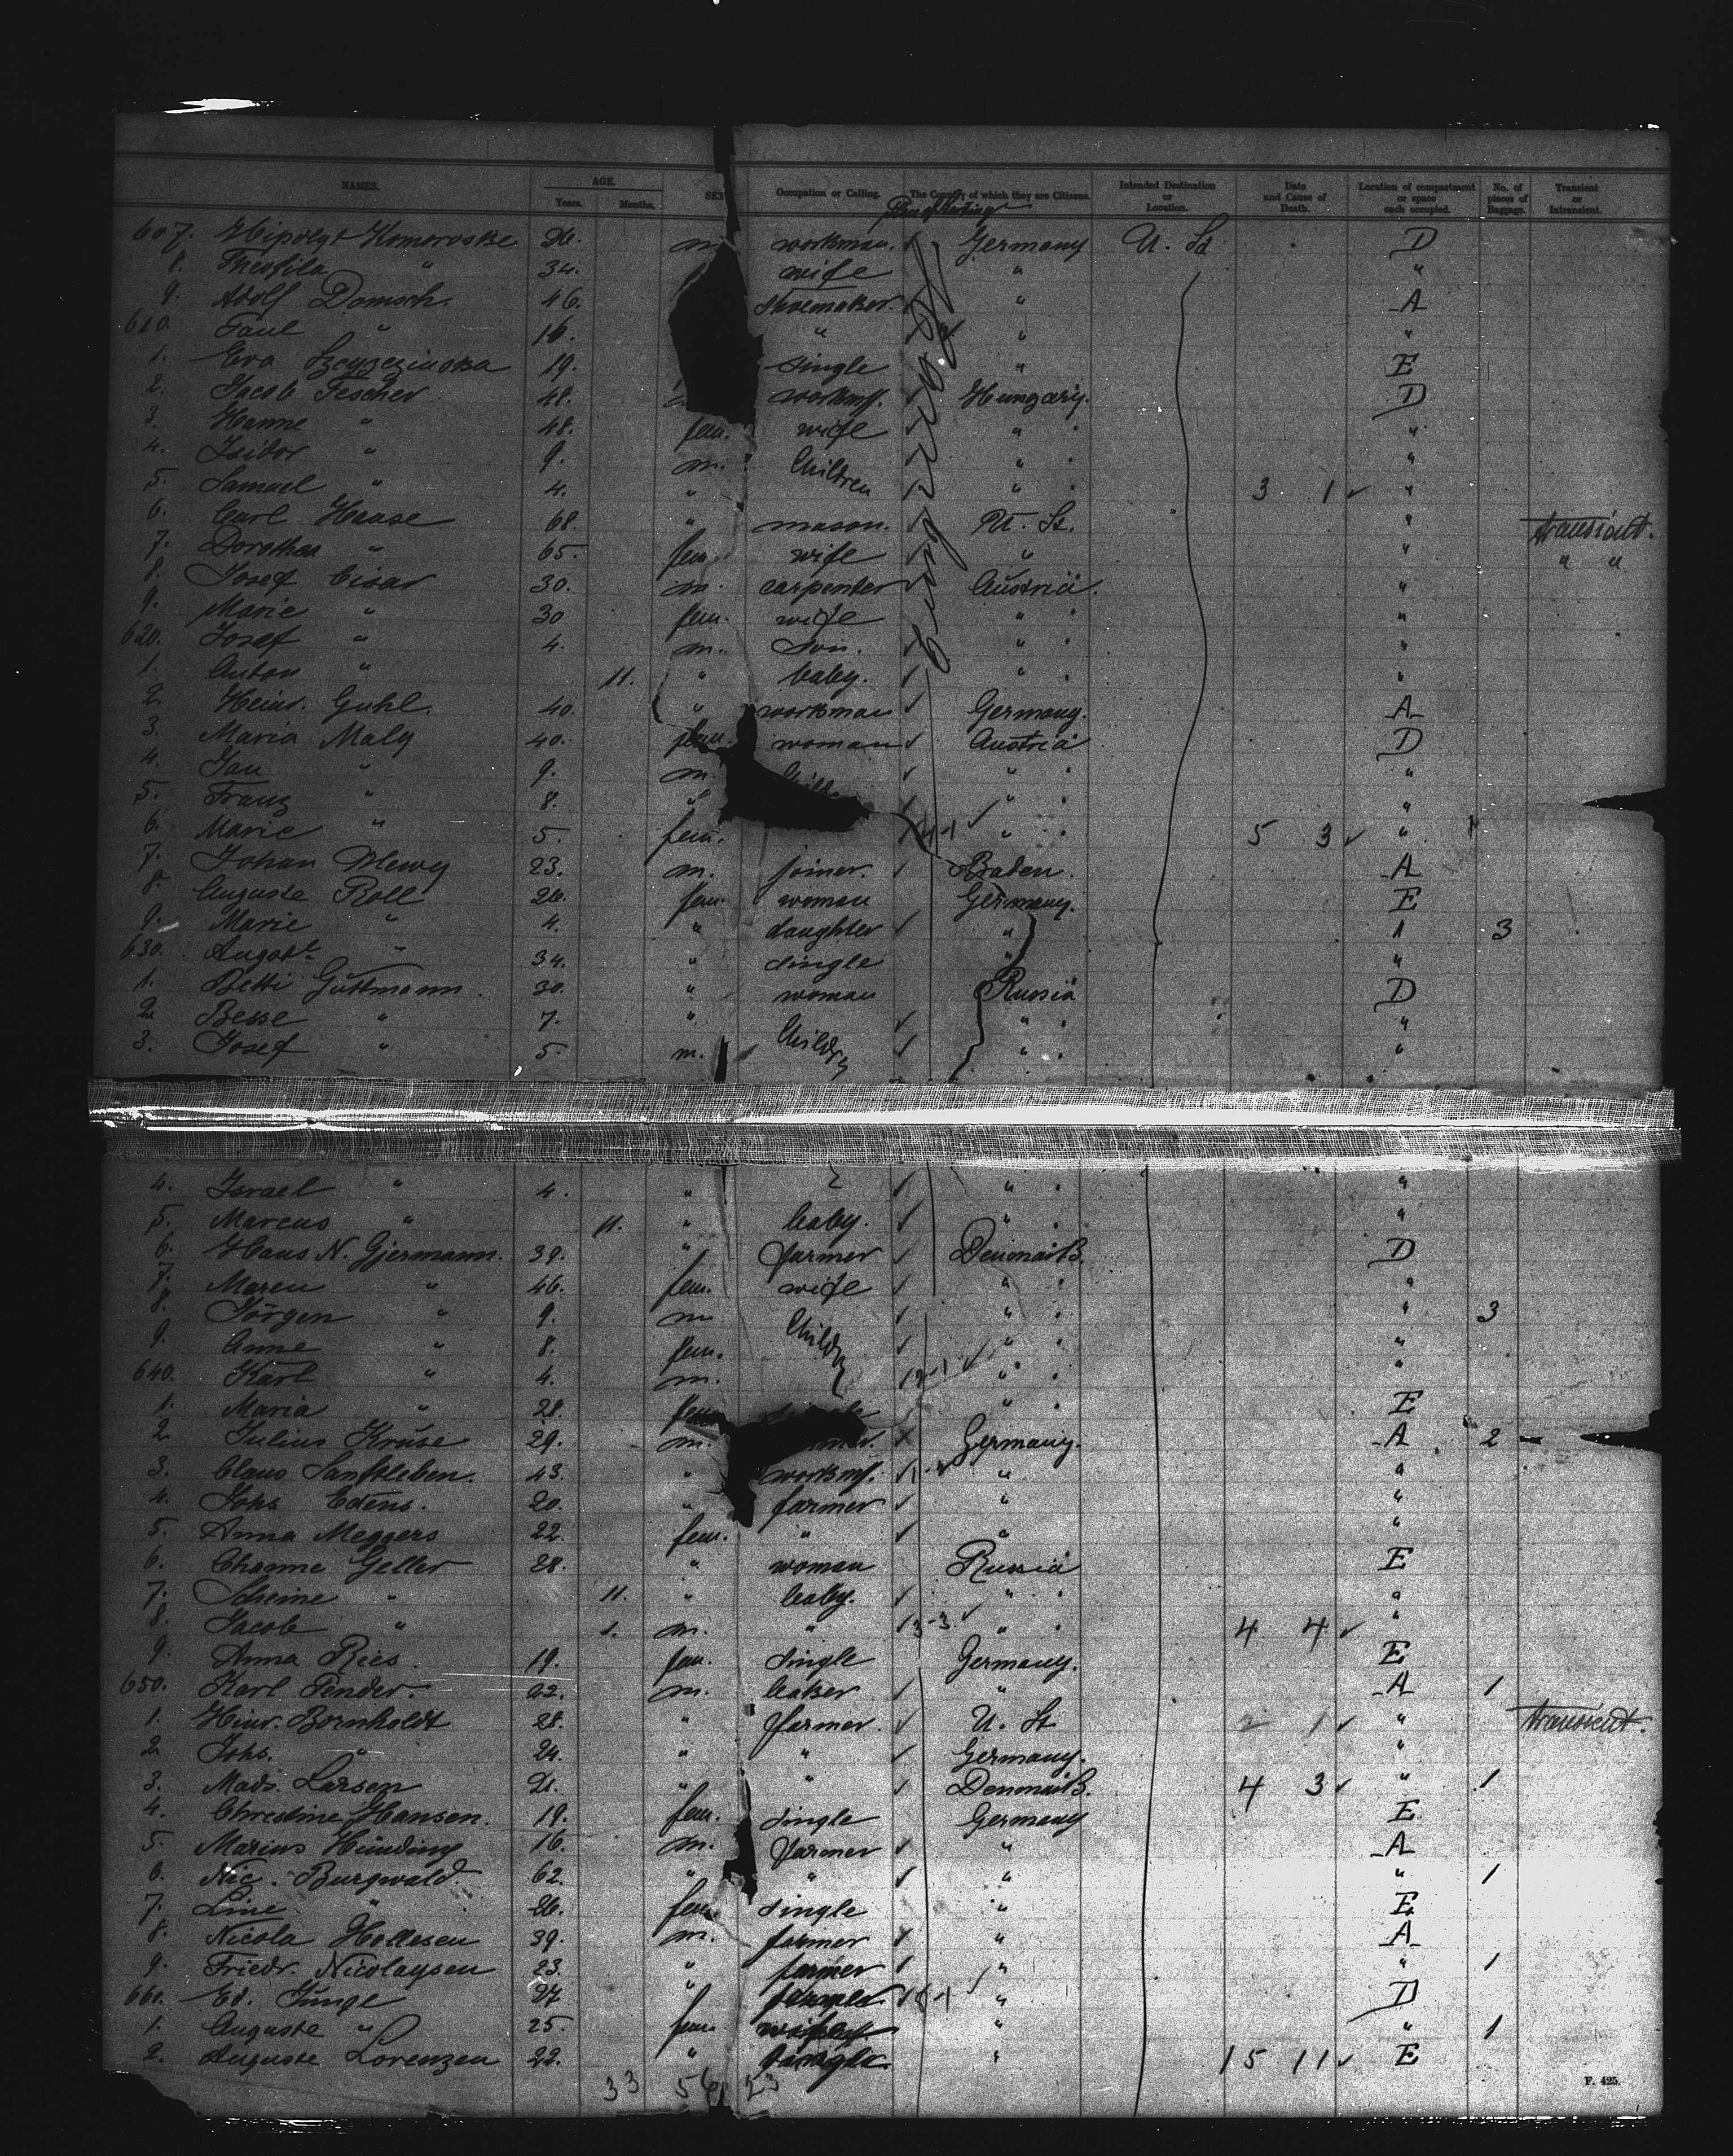 NAMES. AGE. SEX Occupation or Calling. The Country of which they are Citizens. Intended Destination or Location. Date and Cause of Death. Location of compartment or space each occupied. No. of pieces of Baggage. Transient or Intransient.
Years. Months.
607. Hipolyt Komoroske 26. m workman. Germany U. St D
8. Theofila " 34. wife " "
9. Adolf Domsch. 46. shoemaker. " A
610. Paul " 16. " " "
1. Eva 19. single " E
2. Jacob Fischer 48. workmf. Hungary. D
3. Hanne " 48. fem. wife " "
4. Isidor " 9. m. Children " "
5. Samuel " 4. " " 3 1 "
6. Carl Haase 68. " mason. U. St. " transient.
7. Dorothea " 65. fem. wife " " " "
8. Josef Cisar 30. m. carpenter Austria. "
9. Marie " 30 fem. wife " "
620. Josef " 4. m. son. " "
1. Anton " 11. " baby. " "
2 Heinr. Guhl. 40. " workman Germany. A
3. Maria Maly 40. fem. woman Austria D
4. Jan " 9. m. " "
5. Franz " 8. " " "
6. Marie " 5. fem. 4-1 " 5 3 "
7. Johan 23. m. joiner. Baden. A
8. Auguste Roll 26. fem. woman Germany. E
9. Marie " 4. " daughter " " 3
630. August " 34. " single " "
1. Betti Guttmann. 30. " woman Russia D
2 Besse " 7. " Children " "
3. Josef " 5. m. " "
4. Israel " 4. " " "
5. Marcus " 11. " baby. " "
6. Hans N. Gjermann. 39. " farmer Denmark. D
7. Maren " 46. fem. wife " "
8. Jörgen " 9. m Children " " 3
9. Anne " 8. fem. " "
640. Karl " 4. m. 2-1 " "
1. Maria " 28. fem " E
2 Julius Kruse 29. m. Germany. A 2
3. Claus Sanftleben. 43. " workmf. " "
4. Johs. Edens. 20. " farmer " "
5. Anna Meggers 22. fem. " " "
6. Channe Geller 28. " woman Russia E
7. Scheine " 11. " baby. " "
8. Jacob " 1. m. " 3-3 " 4 4 "
9. Anna Ries. 19. fem. single Germany. E
650. Karl Fender. 22. m. baker " A 1
1. Hinr. Bornholdt 28. " farmer. U. St 2 1 " transient.
2 Johs. " 24. " " Germany. "
3. Mads. Larsen 21. " " Denmark. 4 3 " 1
4. Christine Hansen. 19. fem. single Germany E
5. Marius Hünding 16. m. farmer " A
6. Nic. Burgwald. 62. " " " " 1
7. Line " 26. fem. single " E
8. Nicola Hollesen 39. m. farmer " A
9. Friedr. Nicolaysen 23. " farmer " " 1
660. Ed. Junge 27 " " D
1. Auguste " 25. fem. " " 1
2. Auguste Lorenzen 22. " " 15 11 E
33 56 23
F. 425.